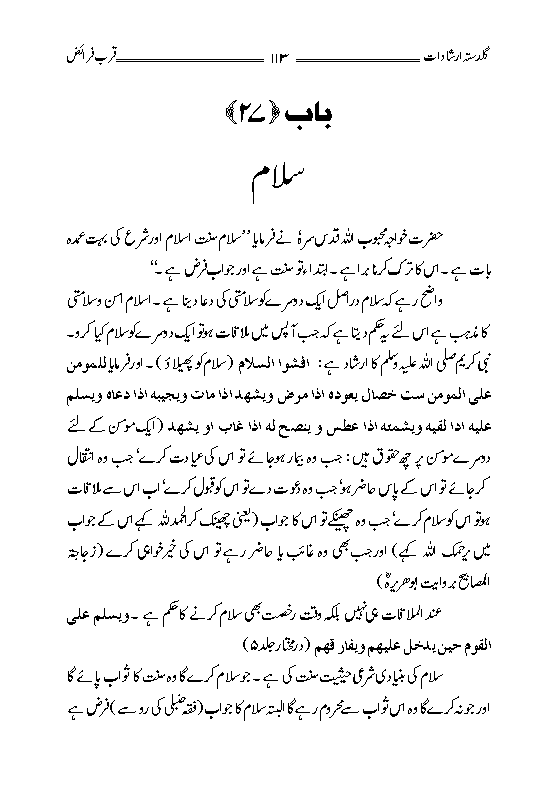 گلدستہ ارشادات ۱۱۳ قرب فرائض
باب ﴿۲۷﴾
سلام
حضرت خواجہ محبوب اللہ قدس سرہٗ نے فرمایا ’’سلام سنت اسلام اور شرع کی بہت عمدہ
بات ہے ۔ اس کا ترک کرنا برا ہے ۔ ابتداء تو سنت ہے اور جواب فرض ہے ۔‘‘
واضح رہے کہ سلام دراصل ایک دوسرے کو سلامتی کی دعا دینا ہے ۔ اسلام امن وسلامتی
کا مذہب ہے اس لئے یہ حکم دیتا ہے کہ جب آپس میں ملاقات ہو تو ایک دوسرے کو سلام کیا کرو۔
نبی کریم صلی اللہ علیہ وسلم کا ارشاد ہے : افشوا السلام (سلام کو پھیلاؤ)۔ اور فرمایا للمومن
علی المومن ست خصال یعودہ اذا مرض ویشھد اذا مات ویجیبہ اذا دعاہ ویسلم
علیہ اذا لقیہ ویشمتہ اذا عطس و ینصح لہ اذا غاب او یشھد (ایک مومن کے لئے
دوسرے مومن پر چھ حقوق ہیں: جب وہ بیمار ہوجائے تو اس کی عیادت کرے‘ جب وہ انتقال
کرجائے تو اس کے پاس حاضر ہو‘ جب وہ دعوت دے تو اس کو قبول کرے‘ اب اس سے ملاقات
ہو تو اس کو سلام کرے‘ جب وہ چھینکے تو اس کا جواب (یعنی چھینک کر الحمدللہ کہے اس کے جواب
میں یرحمک اللہ کہے) اور جب بھی وہ غائب یا حاضر رہے تو اس کی خیرخواہی کرے (زجاجۃ
المصابیح بروایت ابوھریرہؓ)
عند الملاقات ہی نہیں بلکہ وقت رخصت بھی سلام کرنے کا حکم ہے ۔ ویسلم علی
القوم حین یدخل علیھم ویفارقھم (درمختار جلد۵)
سلام کی بنیادی شرعی حیثیت سنت کی ہے ۔ جو سلام کرے گا وہ سنت کا ثواب پائے گا
اور جو نہ کرے گا وہ اس ثواب سے محروم رہے گا البتہ سلام کا جواب (فقہ حنبلی کی رو سے) فرض ہے